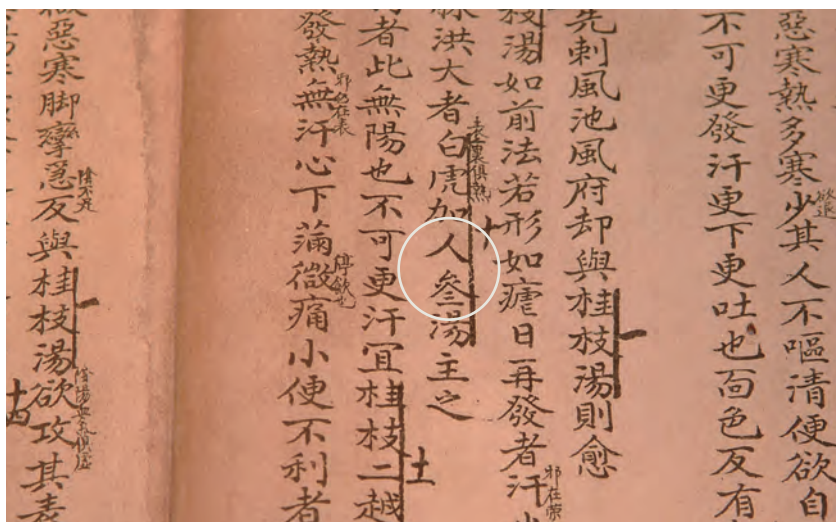 惡寒熱多寒少其人不嘔清便欲自
不可更發汗更下更吐也面色反有
先刺風池風府却與桂枝湯則愈
枝湯如前法若形如瘧日再發者汗
邪在榮
脉洪大者白虎加人叄湯主之
表裏俱熱
者此無陽也不可更汗宜桂枝二越
十一
發熱無汗心下滿微痛小便不利者
邪仍在表
停飲也
惡寒脚攣急反與桂枝湯欲攻其表
陰不足
十四